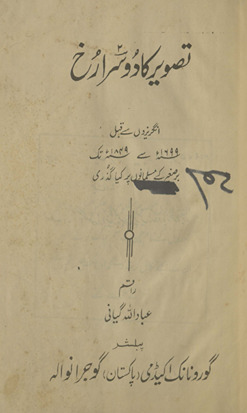 تصویر کا دوسرا رُخ
انگریزوں سے قبل
۱۶۹۹ء سے ۱۸۴۹ء تک
برصغیر کے مسلمانوں پر کیا گذری
راقم
عباداللہ گیانی
پبلشر
گورونانک اکیڈمی (پاکستان) گوجرانوالہ